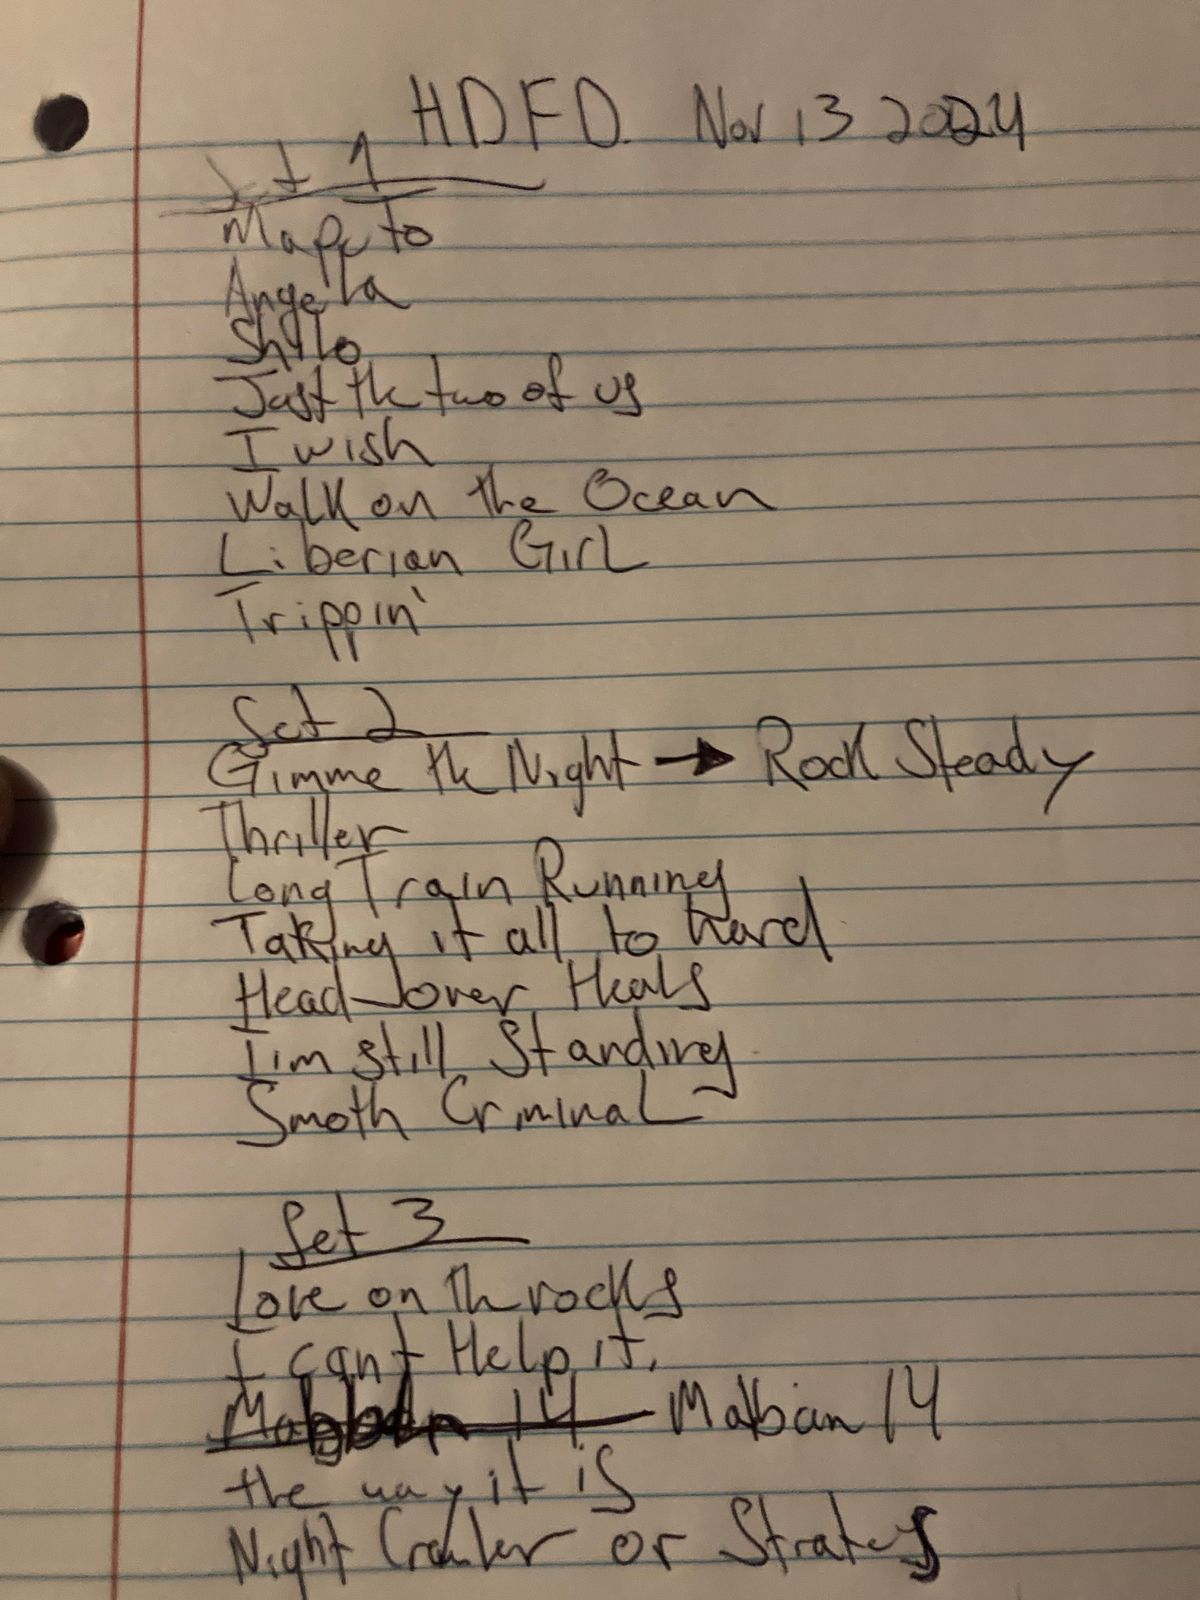 HDFD. Nov 13 2024
Set 1
Maputo
Angela
Shilo
Just the two of us
I wish
Walk on the Ocean
Liberian Girl
Trippin'
Set 2
Gimme the Night → Rock Steady
Thriller
Long Train Running
Taking it all to hard
Head over Heals
I'm still Standing
Smoth Criminal
Set 3
Love on th rocks
I cant Help it.
Malbian 14
the way it is
Night Crawler or Stratus